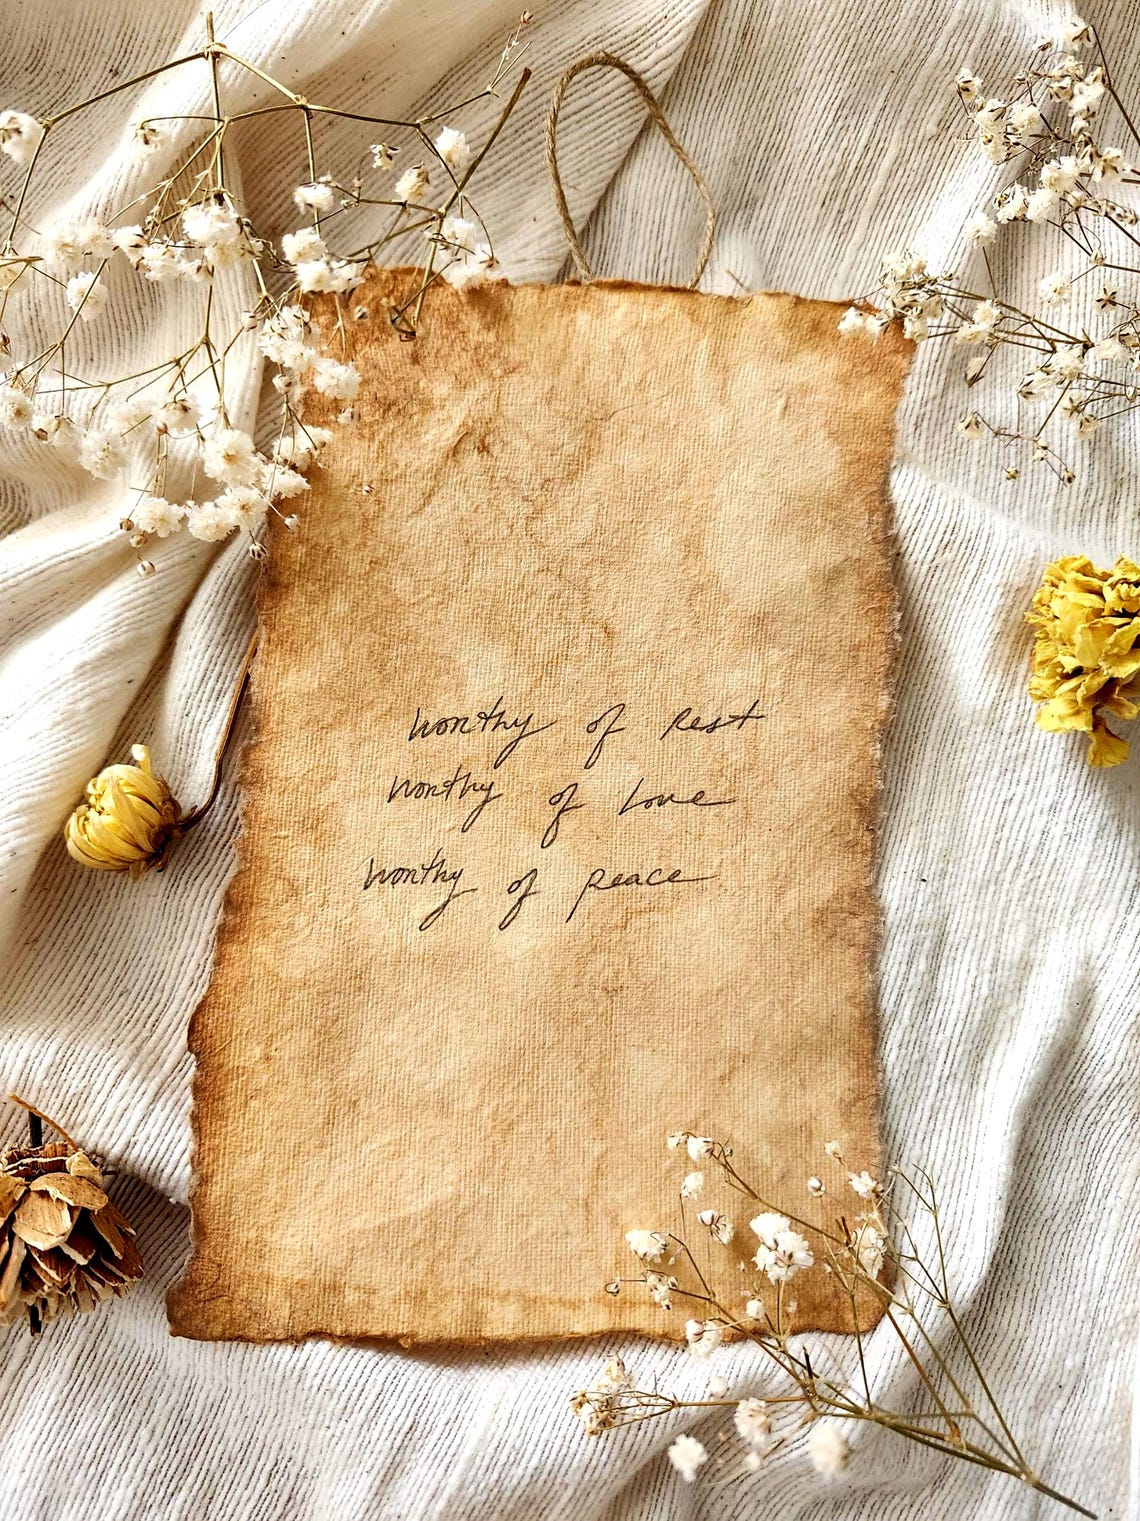 worthy of rest
worthy of love
worthy of peace